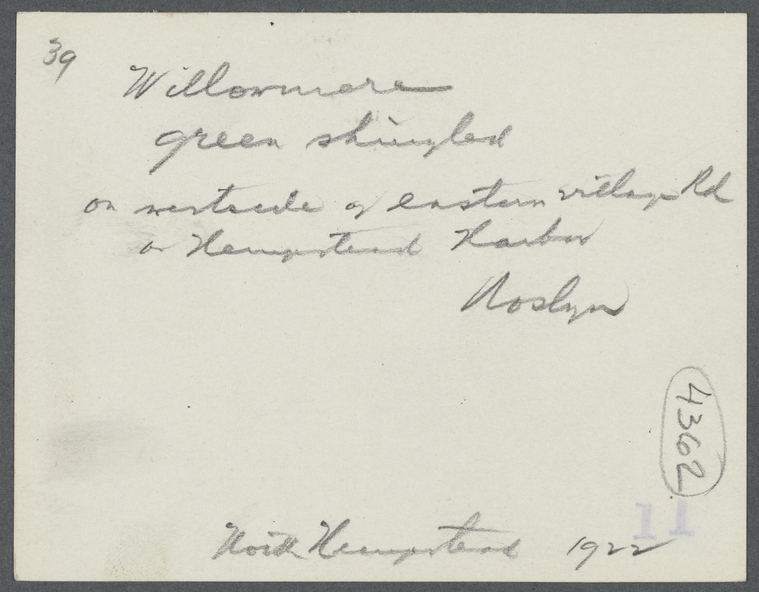 39
Willowmere
green shingled
on westside of eastern village Rd
on Hempstead Harbor
Roslyn
4362
11
North Hempstead 1922